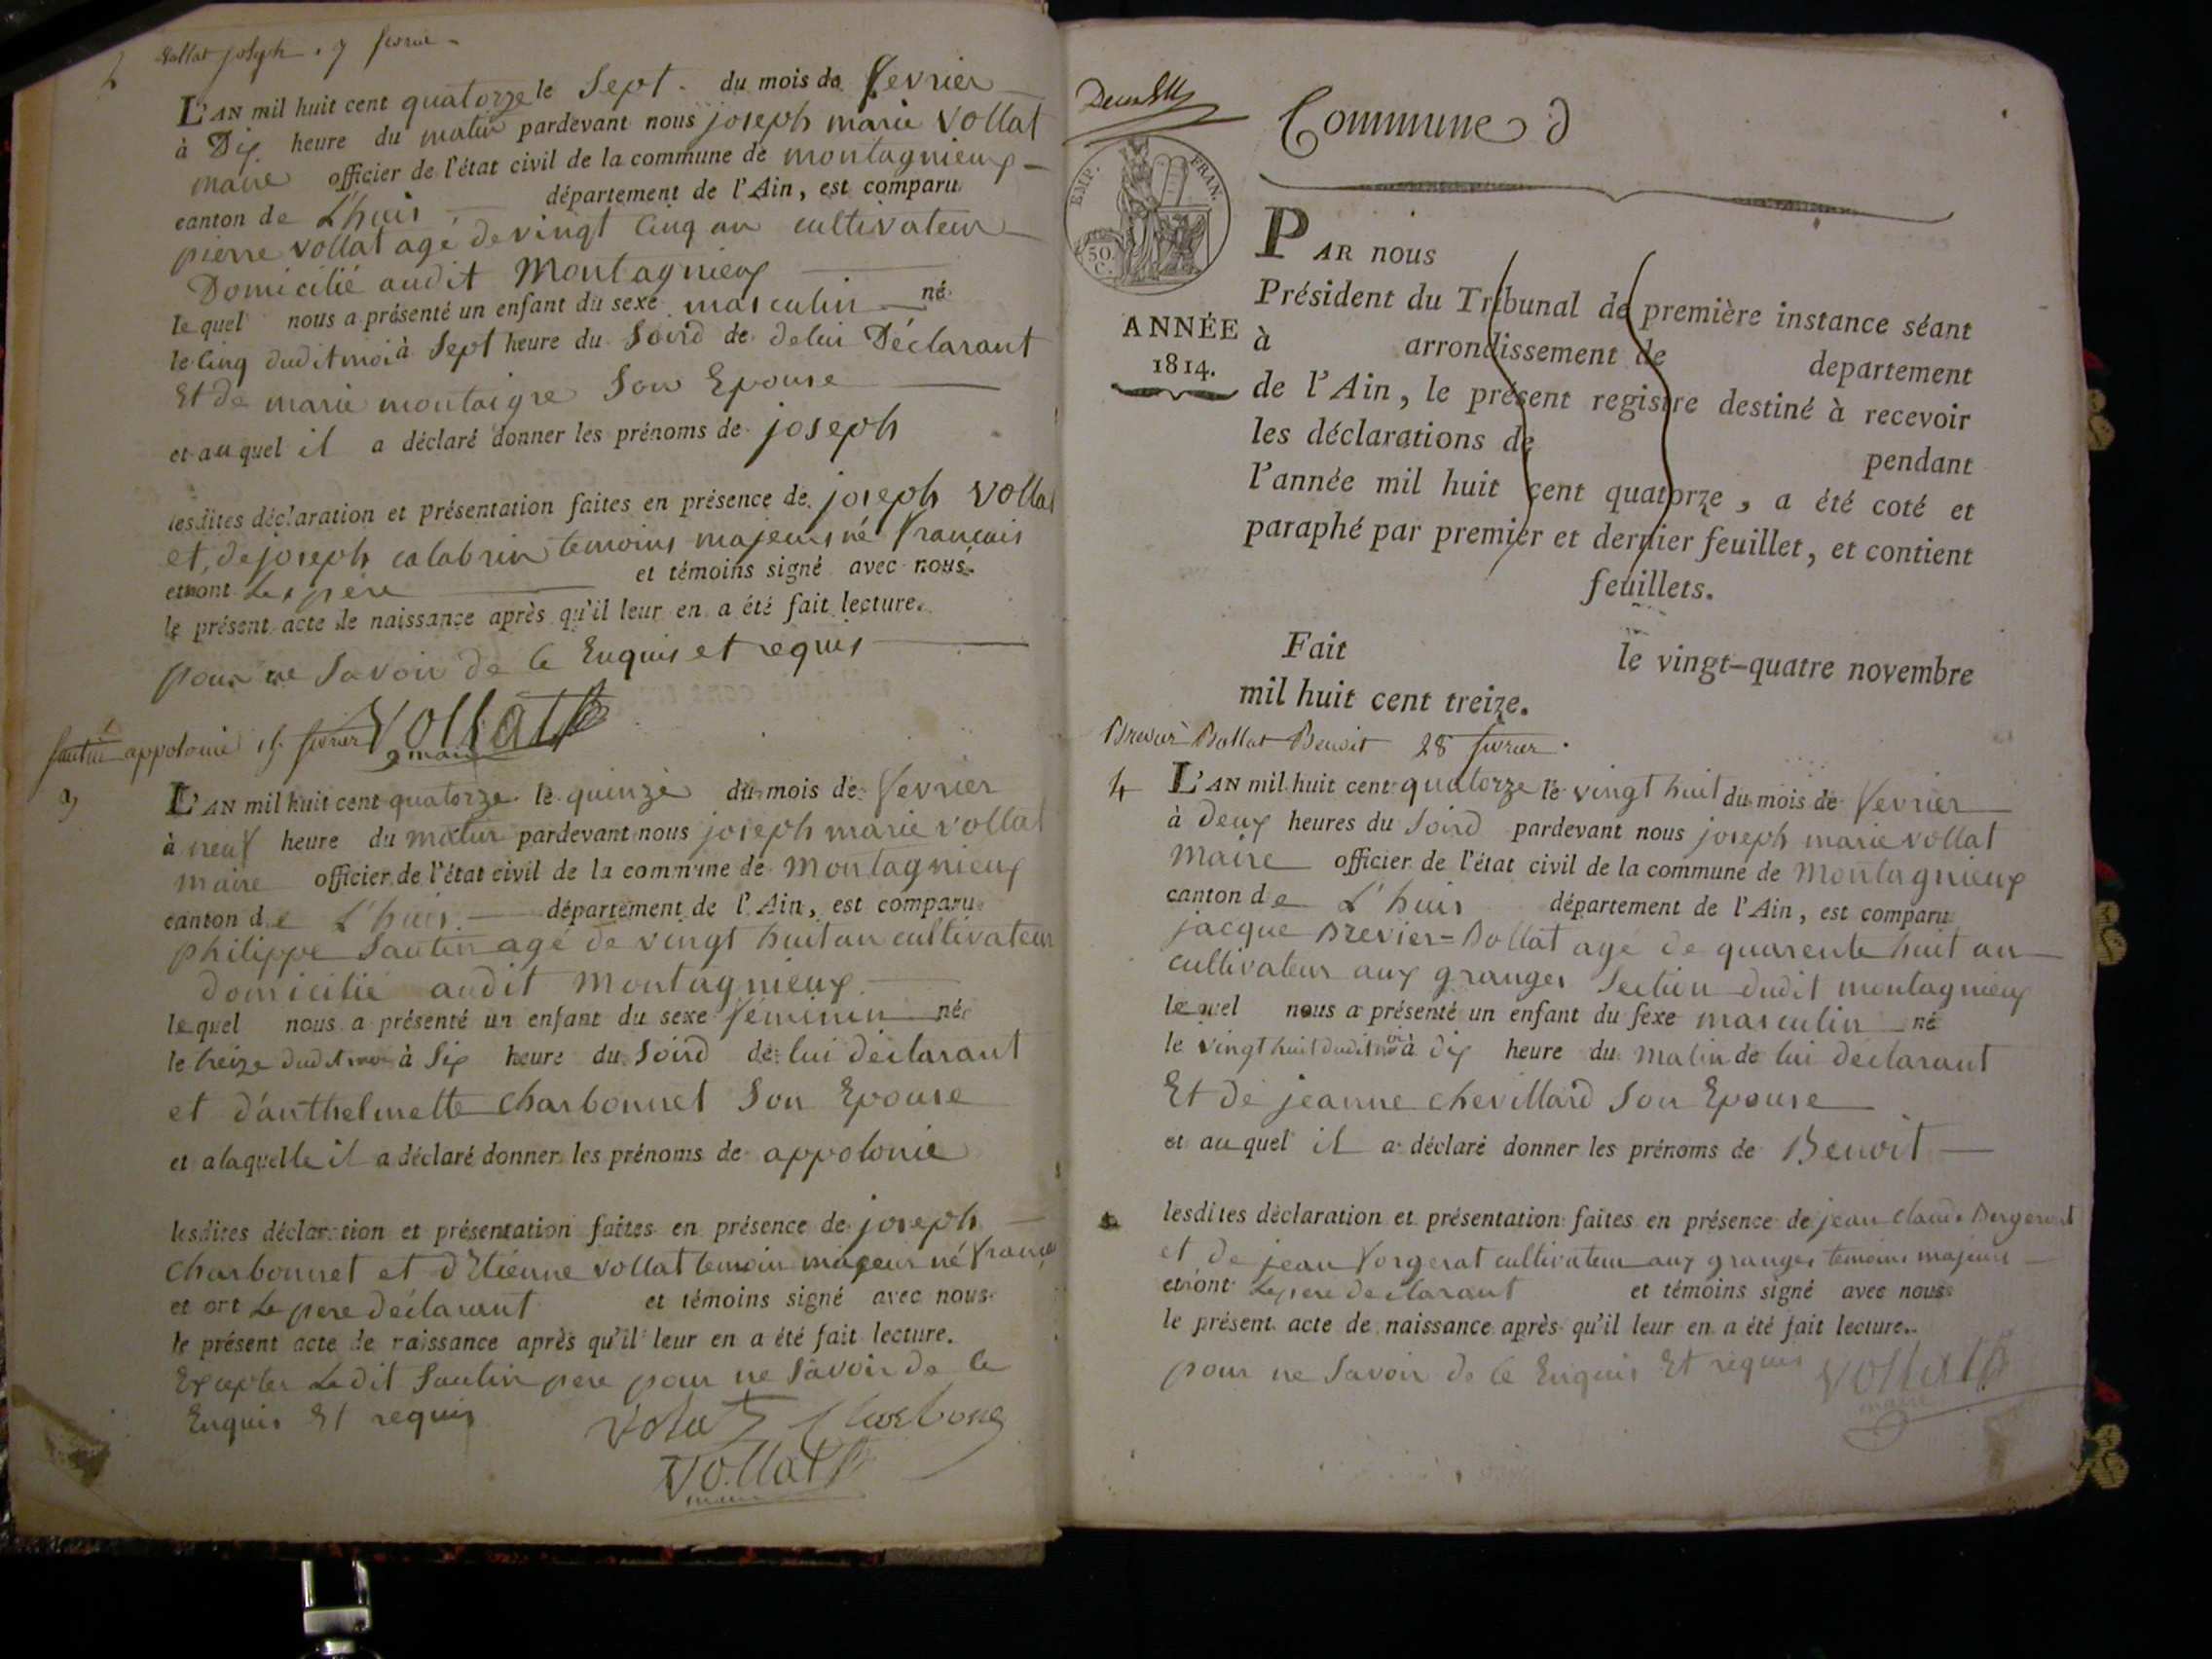 2 Vollat joseph . 7 fevrier
L'AN mil huit cent quatorze le Sept . du mois de fevrier
à Dix heure du matin pardevant nous joseph marie Vollat
maire officier de l'état civil de la commune de montagnieux
canton de L'huis département de l'Ain, est comparu
pierre vollat agé de vingt Cinq an cultivateur
Domicilié audit Montagnieux
lequel nous a présenté un enfant du sexe masculin né
le Cinq dudit moi à Sept heure du Soird de delui Déclarant
Et de marie montaigre Son Epouse
et auquel il a déclaré donner les prénoms de joseph
lesdites déclaration et présentation faites en présence de joseph Vollat
et de joseph calabrin temoins majeurs né francais
et ont Le père et témoins signé avec nous
le présent acte de naissance après qu'il leur en a été fait lecture.
pour ne Savoir de ce Enquis et requis
Vollat
maire
appolonie 15 fevrier
3
L'AN mil huit cent quatorze le quinze du mois de fevrier
à neuf heure du matin pardevant nous joseph marie vollat
maire officier de l'état civil de la commune de Montagnieux
canton de L'huis département de l'Ain, est comparu
philippe Sautin agé de vingt huit an cultivateur
domicilié audit Montagnieux
lequel nous a présenté un enfant du sexe féminin né
le treize dudit moi à Six heure du Soird de lui déclarant
et d'anthelmette Charbonnet Son Epouse
et alaquelle il a déclaré donner les prénoms de appolonie
lesdites déclaration et présentation faites en présence de joseph
Charbonnet et d'Etienne vollat temoin majeur né francais
et ont Le pere déclarant et témoins signé avec nous
le présent acte de naissance après qu'il leur en a été fait lecture.
Excepter Ledit Sautin pere pour ne Savoir de ce
Enquis Et requis
Volat Charbone
Vollat
maire
Commune d
EMP. FRAN.
50. C.
ANNÉE
1814.
PAR nous
Président du Tribunal de première instance séant
à arrondissement de departement
de l'Ain, le présent registre destiné à recevoir
les déclarations de pendant
l'année mil huit cent quatorze, a été coté et
paraphé par premier et dernier feuillet, et contient
feuillets.
Fait le vingt-quatre novembre
mil huit cent treize.
Brevier Bollat Benoit 28 fevrier .
4 L'AN mil huit cent quatorze le vingt huit du mois de fevrier
à deux heures du Soird pardevant nous joseph marie vollat
Maire officier de l'état civil de la commune de Montagnieux
canton de L'huis département de l'Ain, est comparu
jacque Brevier=Bollat agé de quarente huit an
cultivateur aux granges Section dudit montagnieux
lequel nous a présenté un enfant du sexe masculin né
le vingt huit dudit moi à dix heure du Matin de lui déclarant
Et de jeanne chevillard Son Epouse
et auquel il a déclaré donner les prénoms de Benoit
lesdites déclaration et présentation faites en présence de jean Claude
et de jean Vorgerat cultivateur aux granges temoins majeurs
et ont Le pere declarant et témoins signé avec nous
le présent acte de naissance après qu'il leur en a été fait lecture.
pour ne Savoir de ce Enquis Et requis Vollat
maire